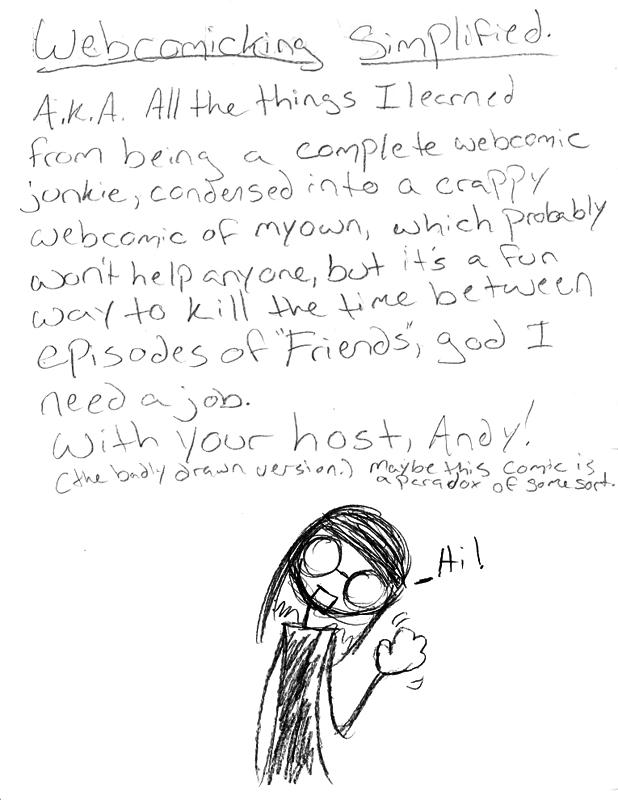 Webcomicking Simplified.
A.K.A. All the things I learned
from being a complete webcomic
junkie, condensed into a crappy
webcomic of my own, which probably
won't help anyone, but it's a fun
way to kill the time between
episodes of "Friends", god I
need a job.
With your host, Andy!
(the badly drawn version.) Maybe this comic is
a paradox of some sort.
Hi!